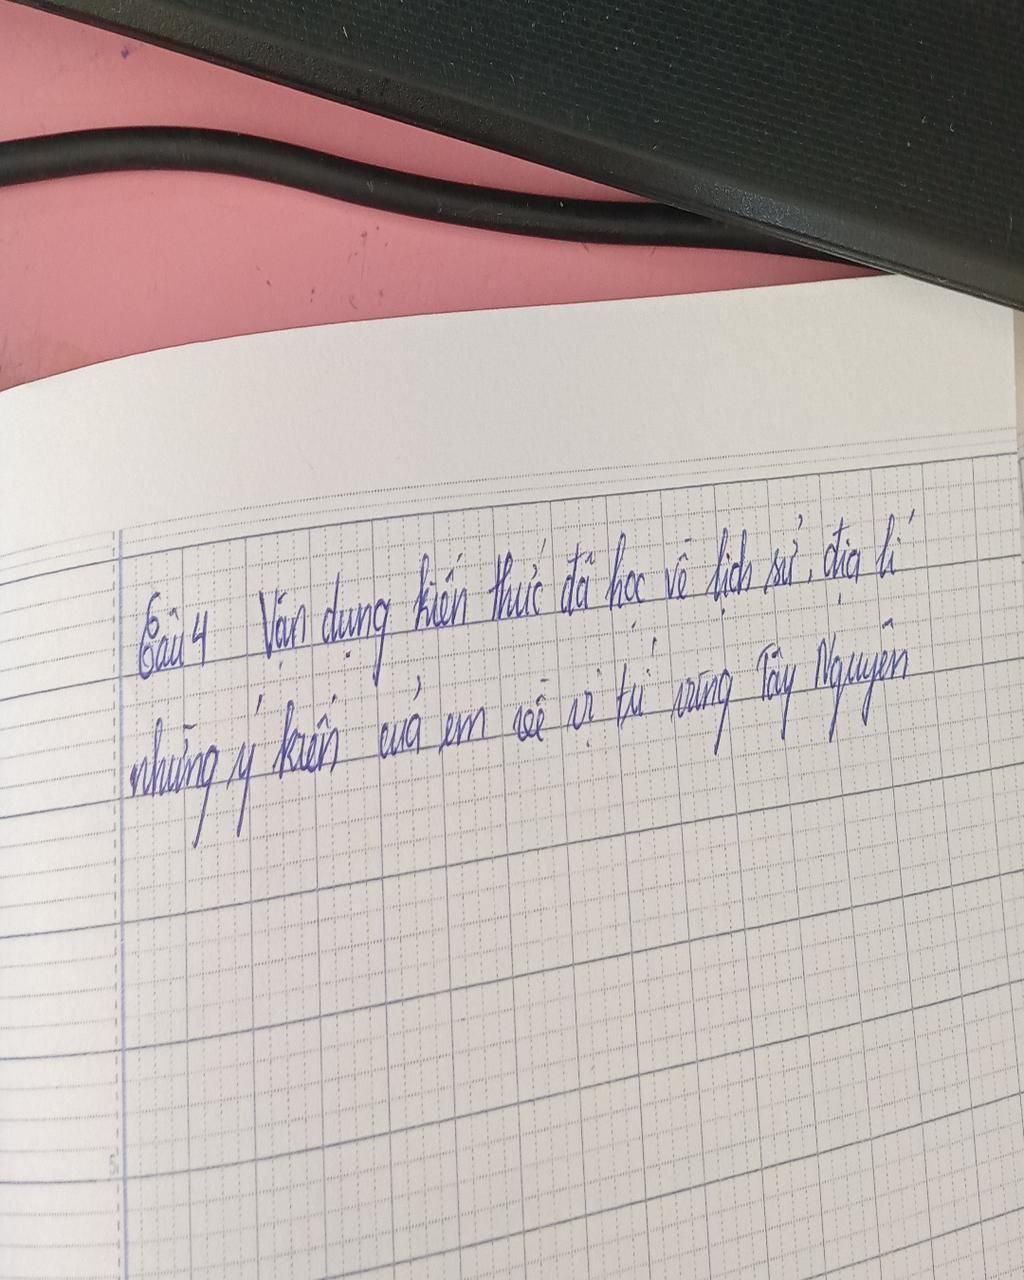 Câu 4 Vận dụng kiến thức đã học về lịch sử, địa lí
những ý kiến của em về vị trí vùng Tây Nguyên